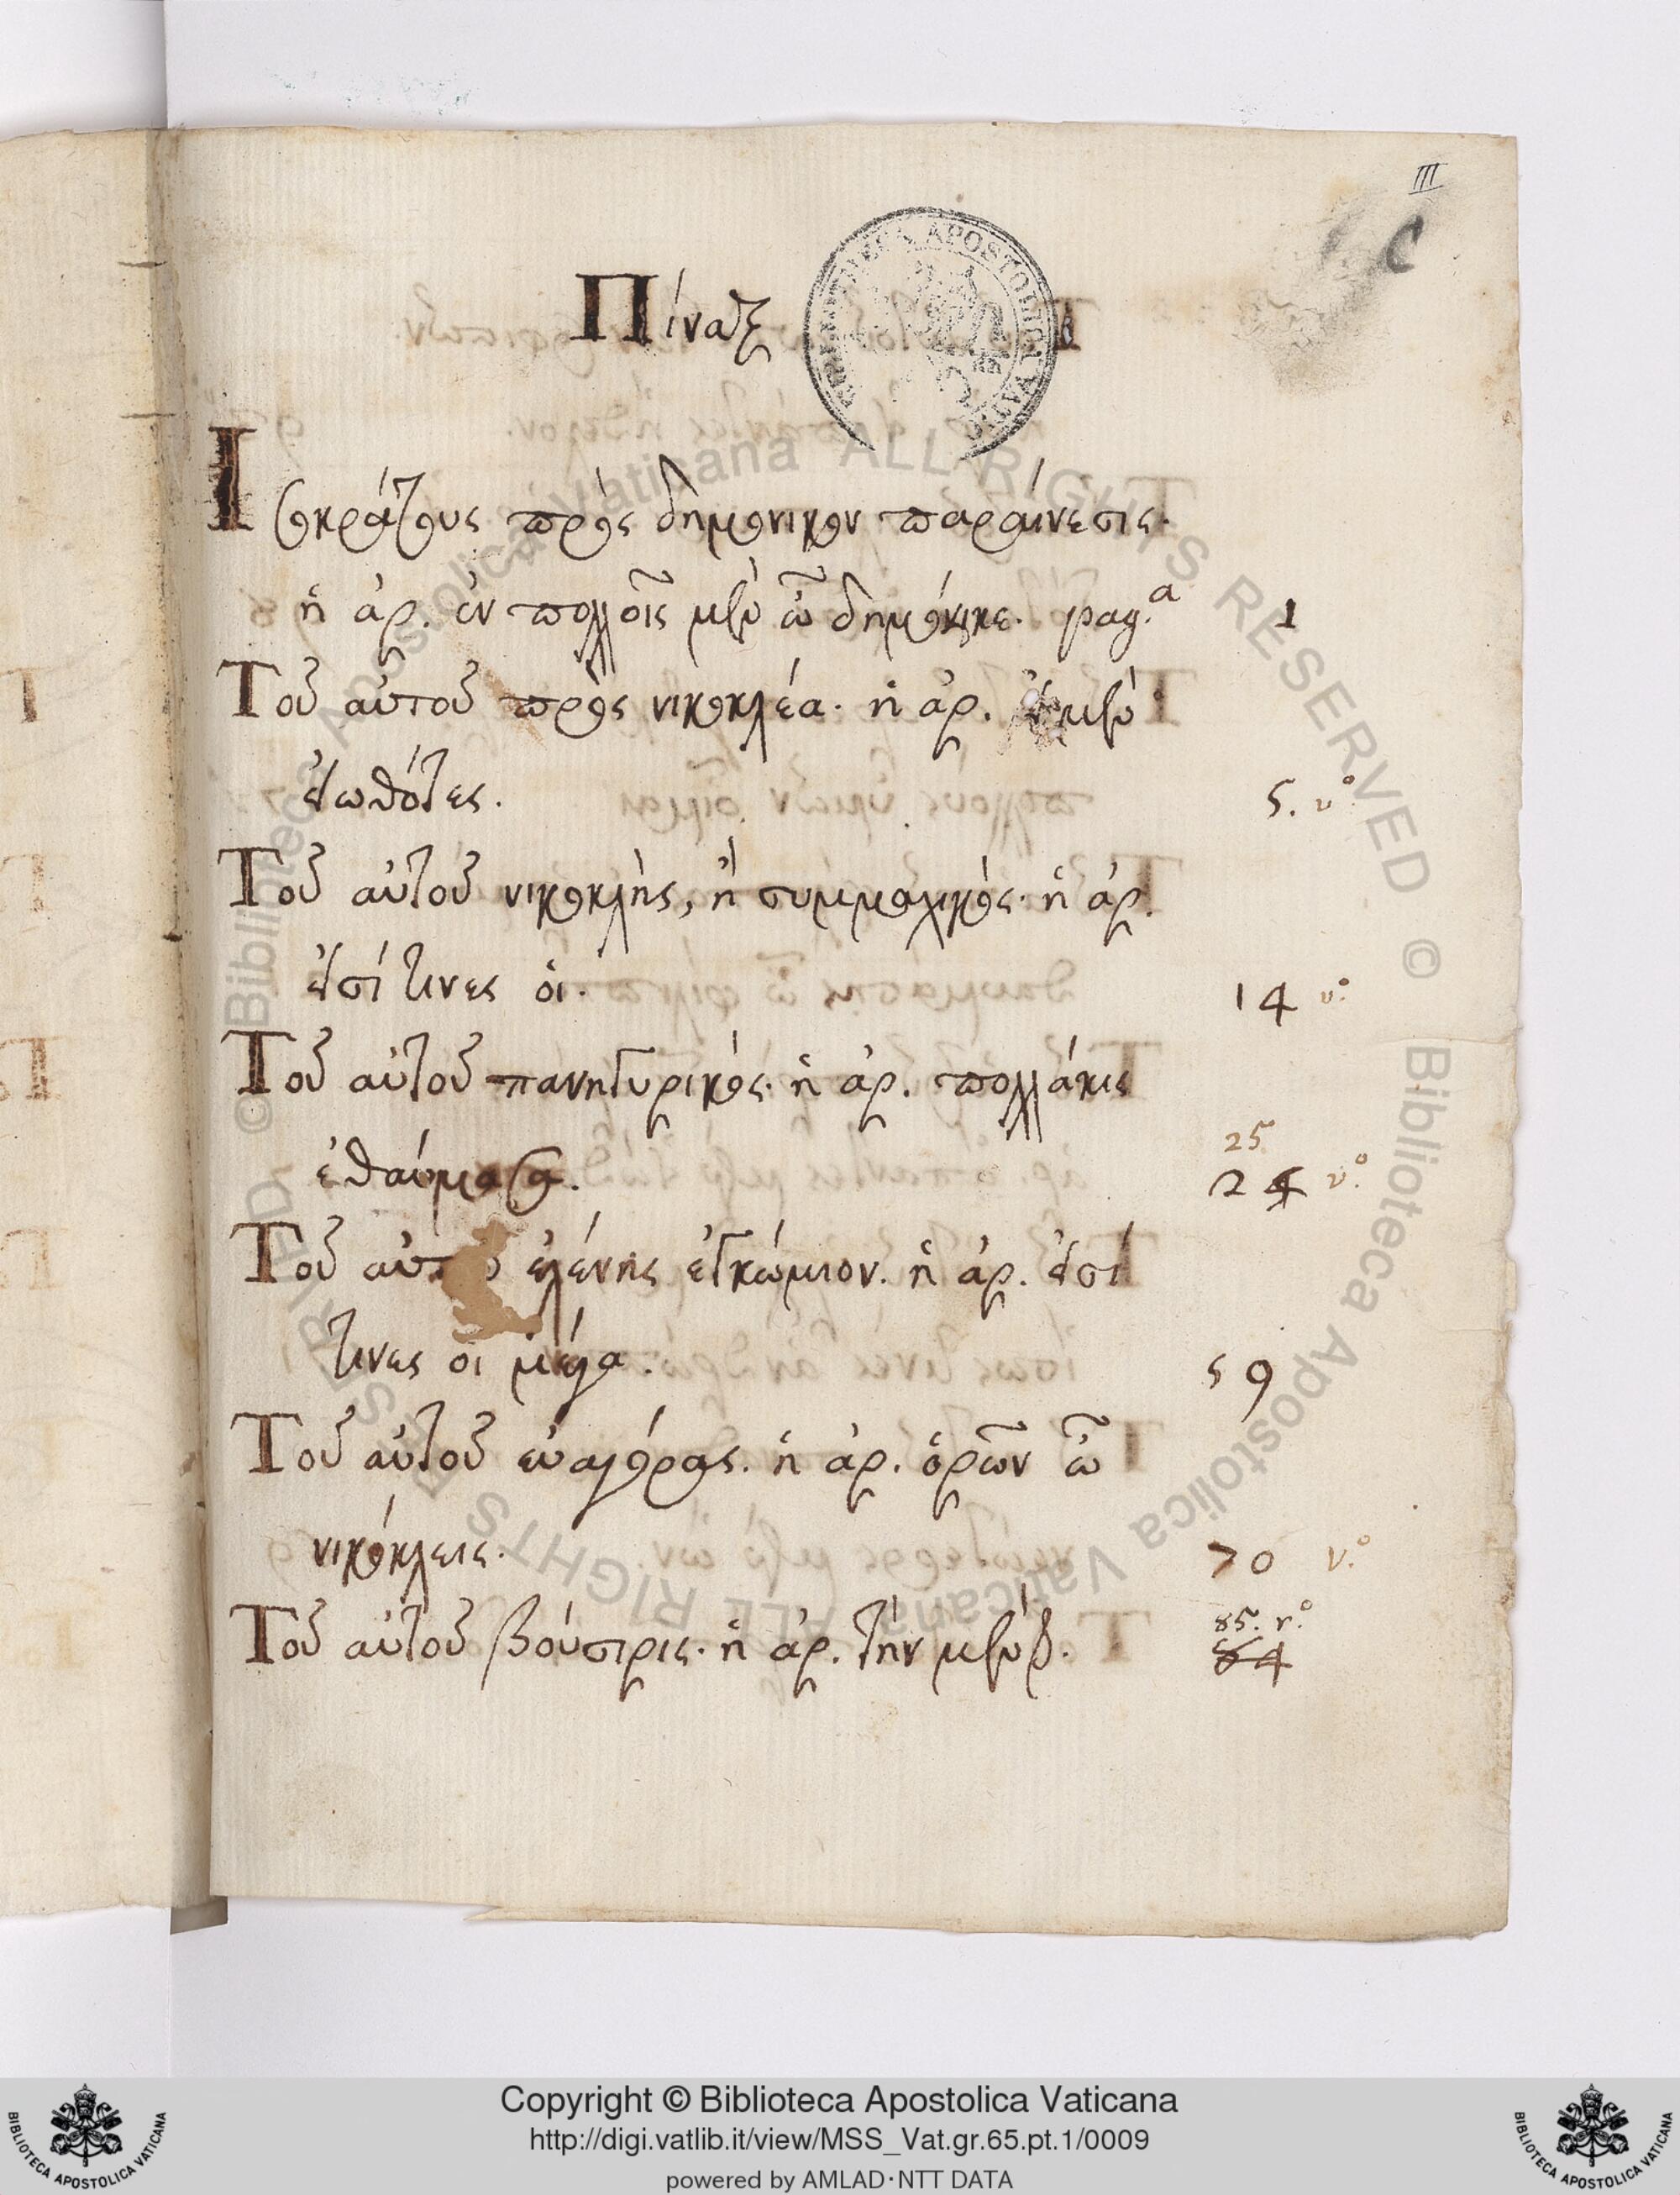 III
C
Πίναξ
Ισοκράτους πρὸς δημόνικον παραίνεσις·
ἡ ἀρ. ἐν πολλοῖς μὲν ὦ δημόνικε. pag.ᵃ 1
Τοῦ αὐτοῦ πρὸς νικοκλέα· ἡ ἀρ. οἱ μὲν
εἰωθότες. 5. v°
Τοῦ αὐτοῦ νικοκλῆς, ἢ συμμαχικός· ἡ ἀρ.
εἰσί τινες οἱ. 14 v°.
Τοῦ αὐτοῦ πανηγυρικός· ἡ ἀρ. πολλάκις
25
ἐθαύμασα. 24 v°.
Τοῦ αὐτοῦ ἑλένης ἐγκώμιον. ἡ ἀρ. εἰσί
τινες οἱ μέγα. 59
Τοῦ αὐτοῦ εὐαγόρας. ἡ ἀρ. ὁρῶν ὦ
νικόκλεις. 70 v.°
85. r.°
Τοῦ αὐτοῦ βούσιρις· ἡ ἀρ. τὴν μὲν. 84
© Biblioteca Apostolica Vaticana ALL RIGHTS RESERVED © Biblioteca Apostolica Vaticana ALL RIGHTS RESERVED
Copyright © Biblioteca Apostolica Vaticana
http://digi.vatlib.it/view/MSS_Vat.gr.65.pt.1/0009
powered by AMLAD·NTT DATA
BIBLIOTECA APOSTOLICA VATICANA
BIBLIOTECA APOSTOLICA VATICANA